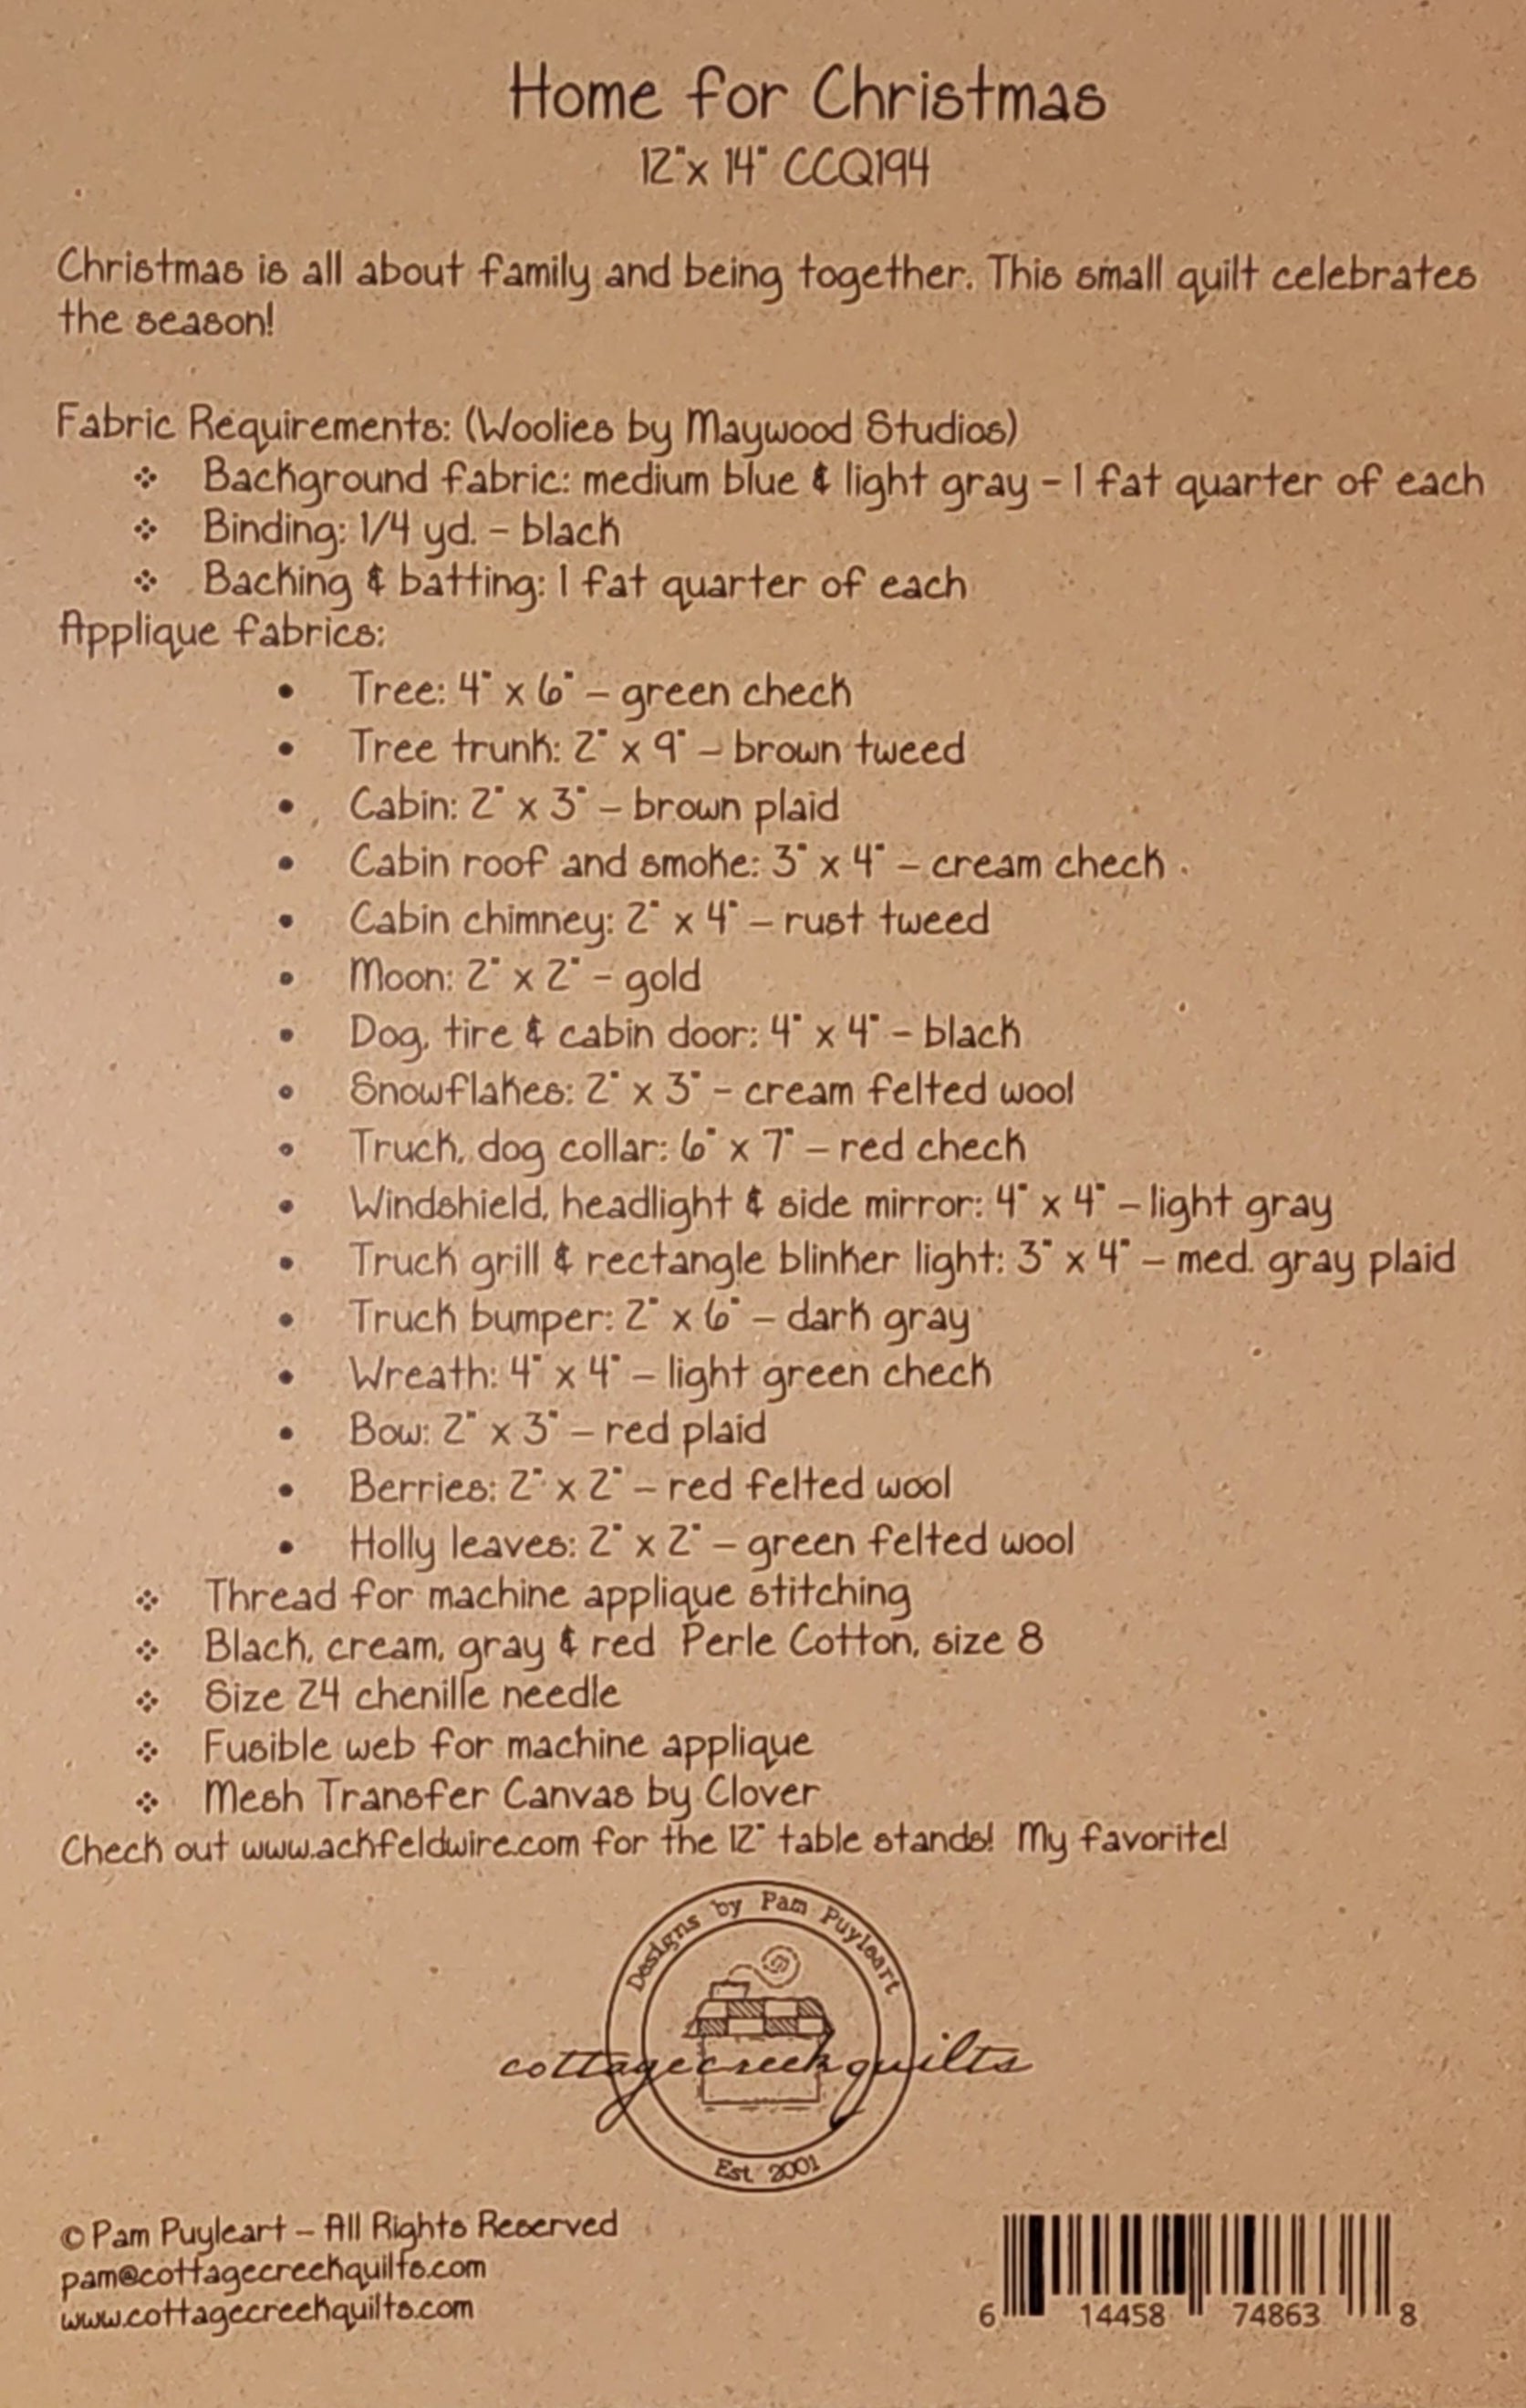 Home for Christmas
12"x 14" CCQ194
Christmas is all about family and being together. This small quilt celebrates
the season!
Fabric Requirements: (Woolies by Maywood Studios)
❖ Background fabric: medium blue & light gray – 1 fat quarter of each
❖ Binding: 1/4 yd. – black
❖ Backing & batting: 1 fat quarter of each
Applique fabrics:
• Tree: 4" x 6" – green check
• Tree trunk: 2" x 9" – brown tweed
• Cabin: 2" x 3" – brown plaid
• Cabin roof and smoke: 3" x 4" – cream check
• Cabin chimney: 2" x 4" – rust tweed
• Moon: 2" x 2" – gold
• Dog, tire & cabin door: 4" x 4" – black
• Snowflakes: 2" x 3" – cream felted wool
• Truck, dog collar: 6" x 7" – red check
• Windshield, headlight & side mirror: 4" x 4" – light gray
• Truck grill & rectangle blinker light: 3" x 4" – med. gray plaid
• Truck bumper: 2" x 6" – dark gray
• Wreath: 4" x 4" – light green check
• Bow: 2" x 3" – red plaid
• Berries: 2" x 2" – red felted wool
• Holly leaves: 2" x 2" – green felted wool
❖ Thread for machine applique stitching
❖ Black, cream, gray & red Perle Cotton, size 8
❖ Size 24 chenille needle
❖ Fusible web for machine applique
❖ Mesh Transfer Canvas by Clover
Check out www.ackfeldwire.com for the 12" table stands! My favorite!
Designs by Pam Puyleart
cottagecreekquilts
Est 2001
© Pam Puyleart – All Rights Reserved
pam@cottagecreekquilts.com
www.cottagecreekquilts.com
6 14458 74863 8